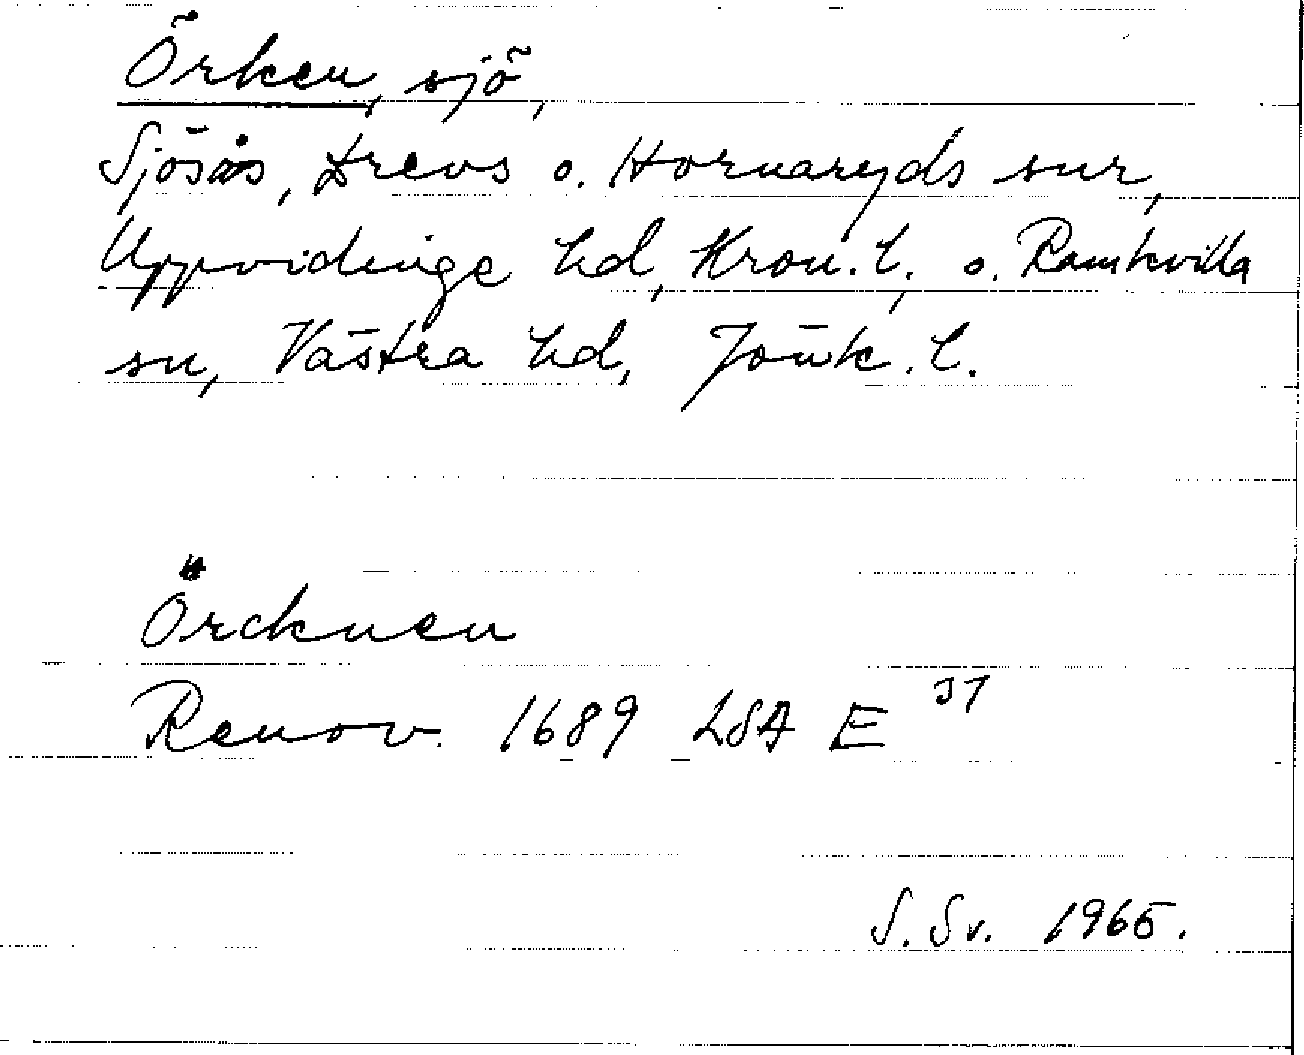 Örken, sjö,
Sjösås, Drevs o. Hornaryds snr,
Uppvidinge hd, Kron. l. o. Ramkvilla
sn, Västra hd, Jönk. l.
Örcknen
Renov. 1689 LSA E 37
S. Sv. 1965.